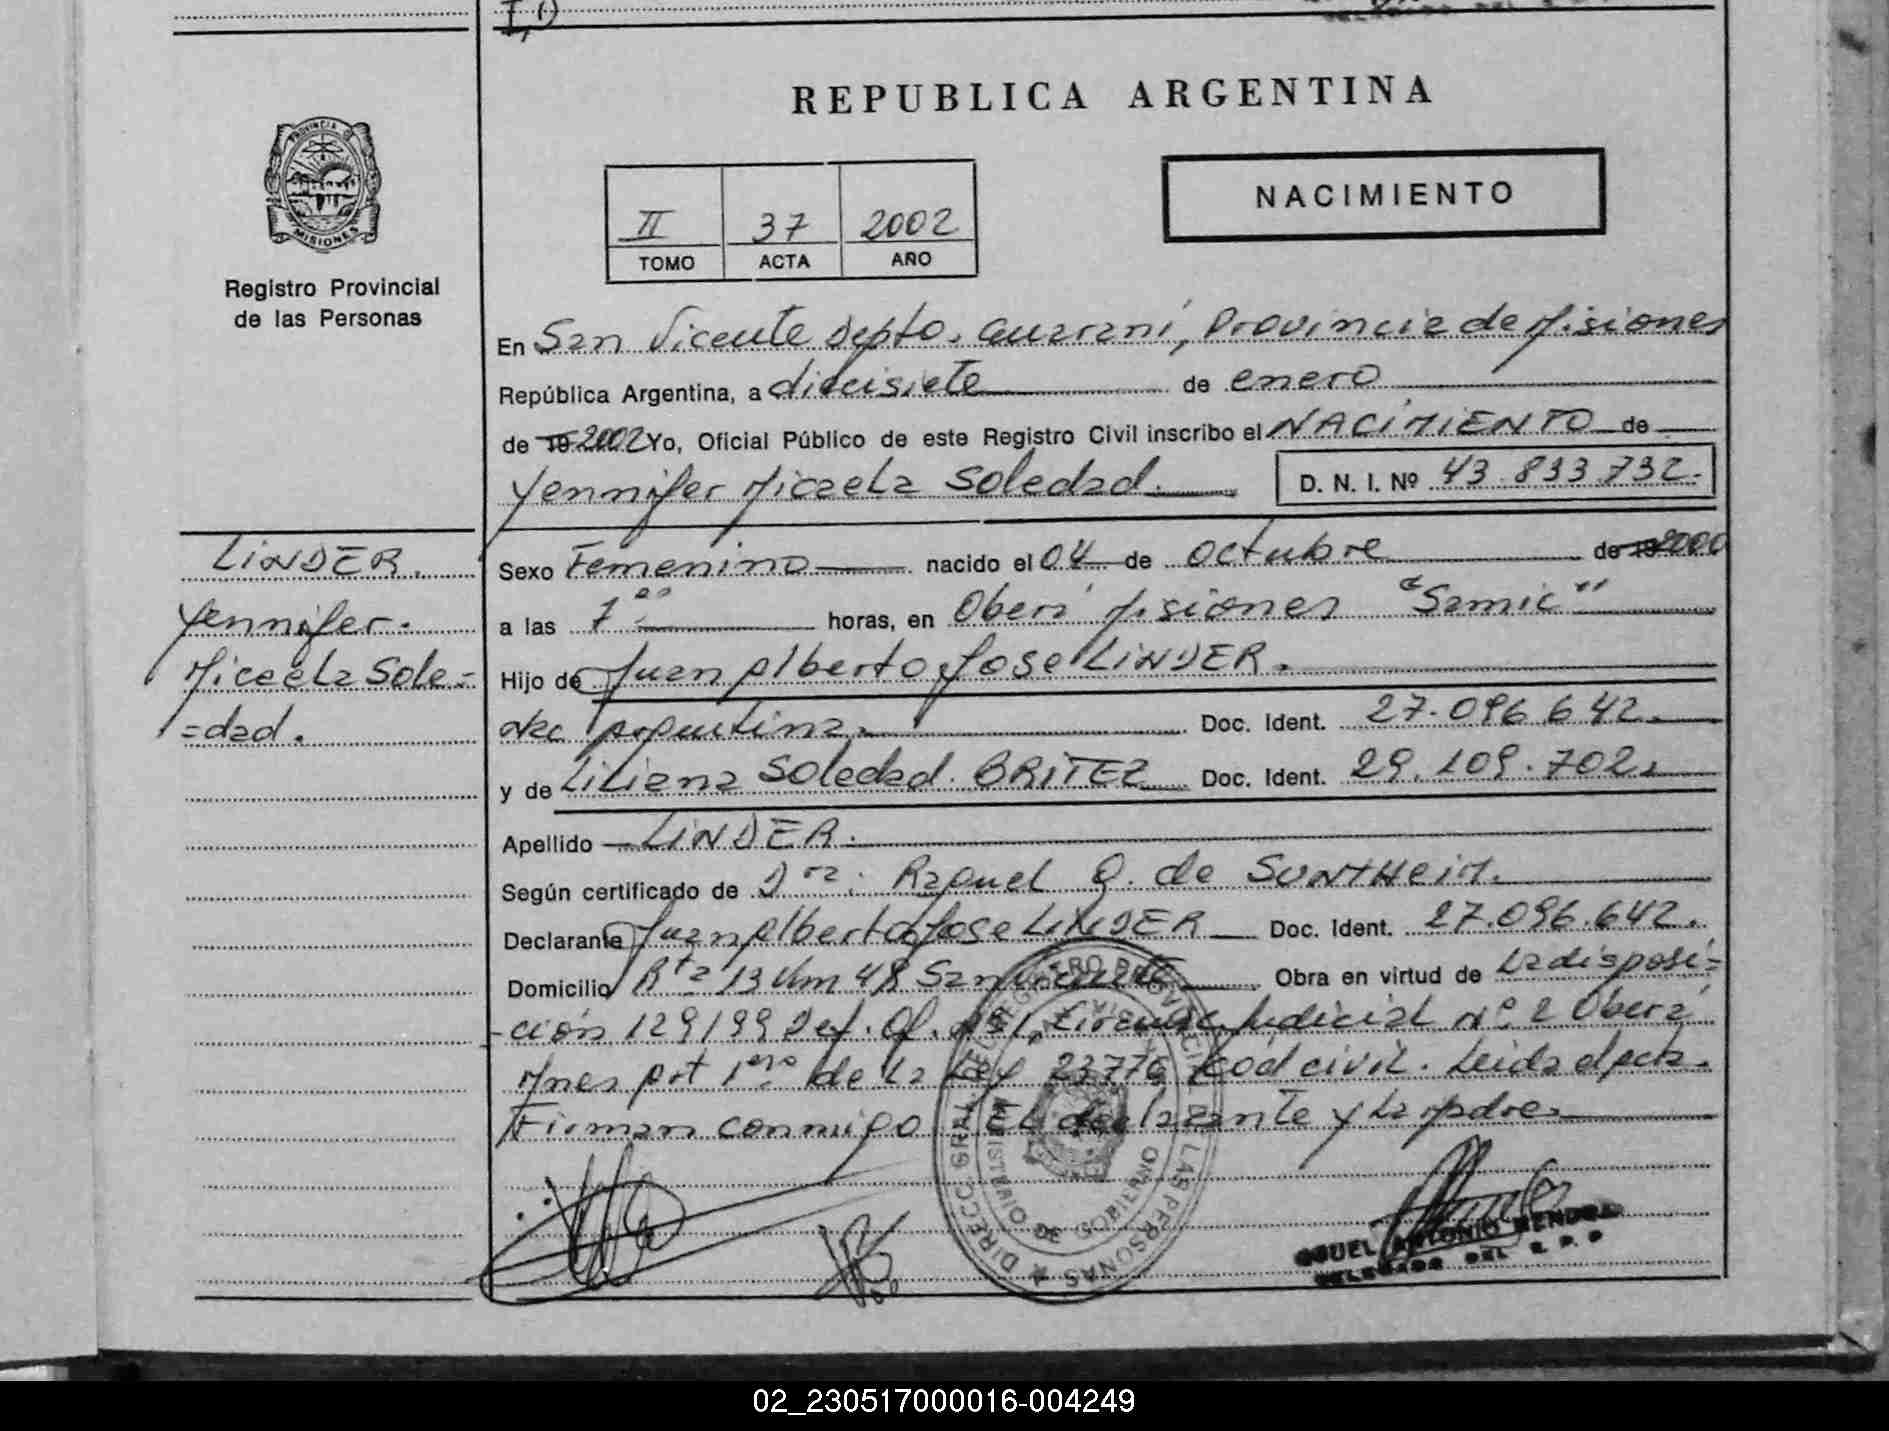 REPUBLICA ARGENTINA
PROVINCIA D
MISIONES
Registro Provincial
de las Personas
II 37 2002
TOMO ACTA AÑO
NACIMIENTO
En San Vicente Depto. Guarani, Provincia de Misiones
República Argentina, a diecisiete de enero
de 19 2002 Yo, Oficial Público de este Registro Civil inscribo el NACIMIENTO de
Yennifer Micaela Soledad. D. N. I. Nº 43.833.732.
LINDER.
Yennifer.
Micaela Sole=
=dad.
Sexo Femenino nacido el 04 de octubre de 19 2000
a las 7 00 horas, en Oberá Misiones "Samic"
Hijo de Juan Alberto Jose LINDER.
Nac Argentina. Doc. Ident. 27.096.642.
y de Liliana Soledad. BRITEZ Doc. Ident. 29.109.702.
Apellido LINDER.
Según certificado de Dra. Raquel Q. de SUNTHEIM.
Declarante Juan Alberto Jose LINDER Doc. Ident. 27.096.642.
Domicilio Rta 13 Km 48 San Vicente Obra en virtud de La disposi=
-ción 129/99 Def. Of. Nº 1, Circunsc. Judicial Nº 2 Oberá
Mnes Art 1ero de La Ley 23776 Cod civil. Leida el Acta.
Firman conmigo EL declarante y La Madre.
DIRECC. GRAL. DEL REGISTRO PROVINCIAL DE LAS PERSONAS
MINISTERIO DE GOBIERNO
MIGUEL ANTONIO MENDOZA
DELEGADO DEL R. P. P
02_230517000016-004249